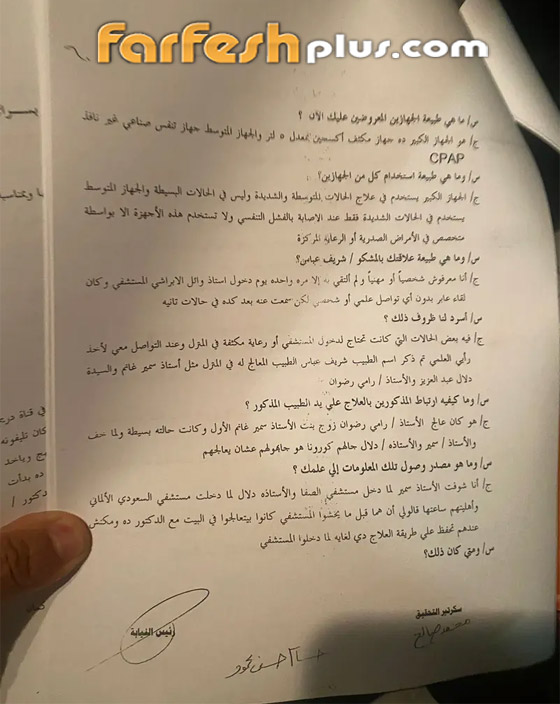 farfeshplus.com
س/ ما هي طبيعة الجهازين المعروضين عليك الآن ؟
ج/ هو الجهاز الكبير ده جهاز مكثف أكسجين بمعدل ٥ لتر والجهاز المتوسط جهاز تنفس صناعي غير نافذ
CPAP
س/ وما هي طبيعة استخدام كل من الجهازين؟
ج/ الجهاز الكبير يستخدم في علاج الحالات المتوسطة والشديدة وليس في الحالات البسيطة والجهاز المتوسط
يستخدم في الحالات الشديدة فقط عند الاصابة بالفشل التنفسي ولا تستخدم هذه الأجهزة الا بواسطة
متخصص في الأمراض الصدرية أو الرعاية المركزة
س/ وما هي طبيعة علاقتك بالمشكو / شريف عباس؟
ج/ أنا معرفوش شخصياً أو مهنياً ولم ألتقي به إلا مره واحده يوم دخول استاذ وائل الابراشي المستشفي وكان
لقاء عابر بدون أي تواصل علمي أو شخصي لكن سمعت عنه بعد كده في حالات تانيه
س/ أسرد لنا ظروف ذلك ؟
ج/ فيه بعض الحالات التي كانت تحتاج لدخول المستشفي أو رعاية مكثفة في المنزل وعند التواصل معي لأخذ
رأيي العلمي تم ذكر اسم الطبيب شريف عباس الطبيب المعالج له في المنزل مثل أستاذ سمير غانم والسيدة
دلال عبد العزيز والأستاذ / رامي رضوان
س/ وما كيفيه ارتباط المذكورين بالعلاج علي يد الطبيب المذكور ؟
ج/ هو كان عالج الأستاذ / رامي رضوان زوج بنت الأستاذ سمير غانم الأول وكانت حالته بسيطة ولما خف
والأستاذ / سمير والأستاذه / دلال جالهم كورونا هو جابهولهم عشان يعالجهم
س/ وما هو مصدر وصول تلك المعلومات إلي علمك ؟
ج/ أنا شوفت الأستاذ سمير لما دخل مستشفي الصفا والأستاذه دلال لما دخلت مستشفي السعودي الألماني
وأهليتهم ساعتها قالولي أن هما قبل ما يخشوا المستشفي كانوا بيتعالجوا في البيت مع الدكتور ده ومكنش
عندهم تحفظ علي طريقة العلاج دي لغايه لما دخلوا المستشفي
س/ ومتي كان ذلك؟
سكرتير التحقيق
رئيس النيابة
في قناة دريم
كان تليفونه
ده بدأت
دكتور /